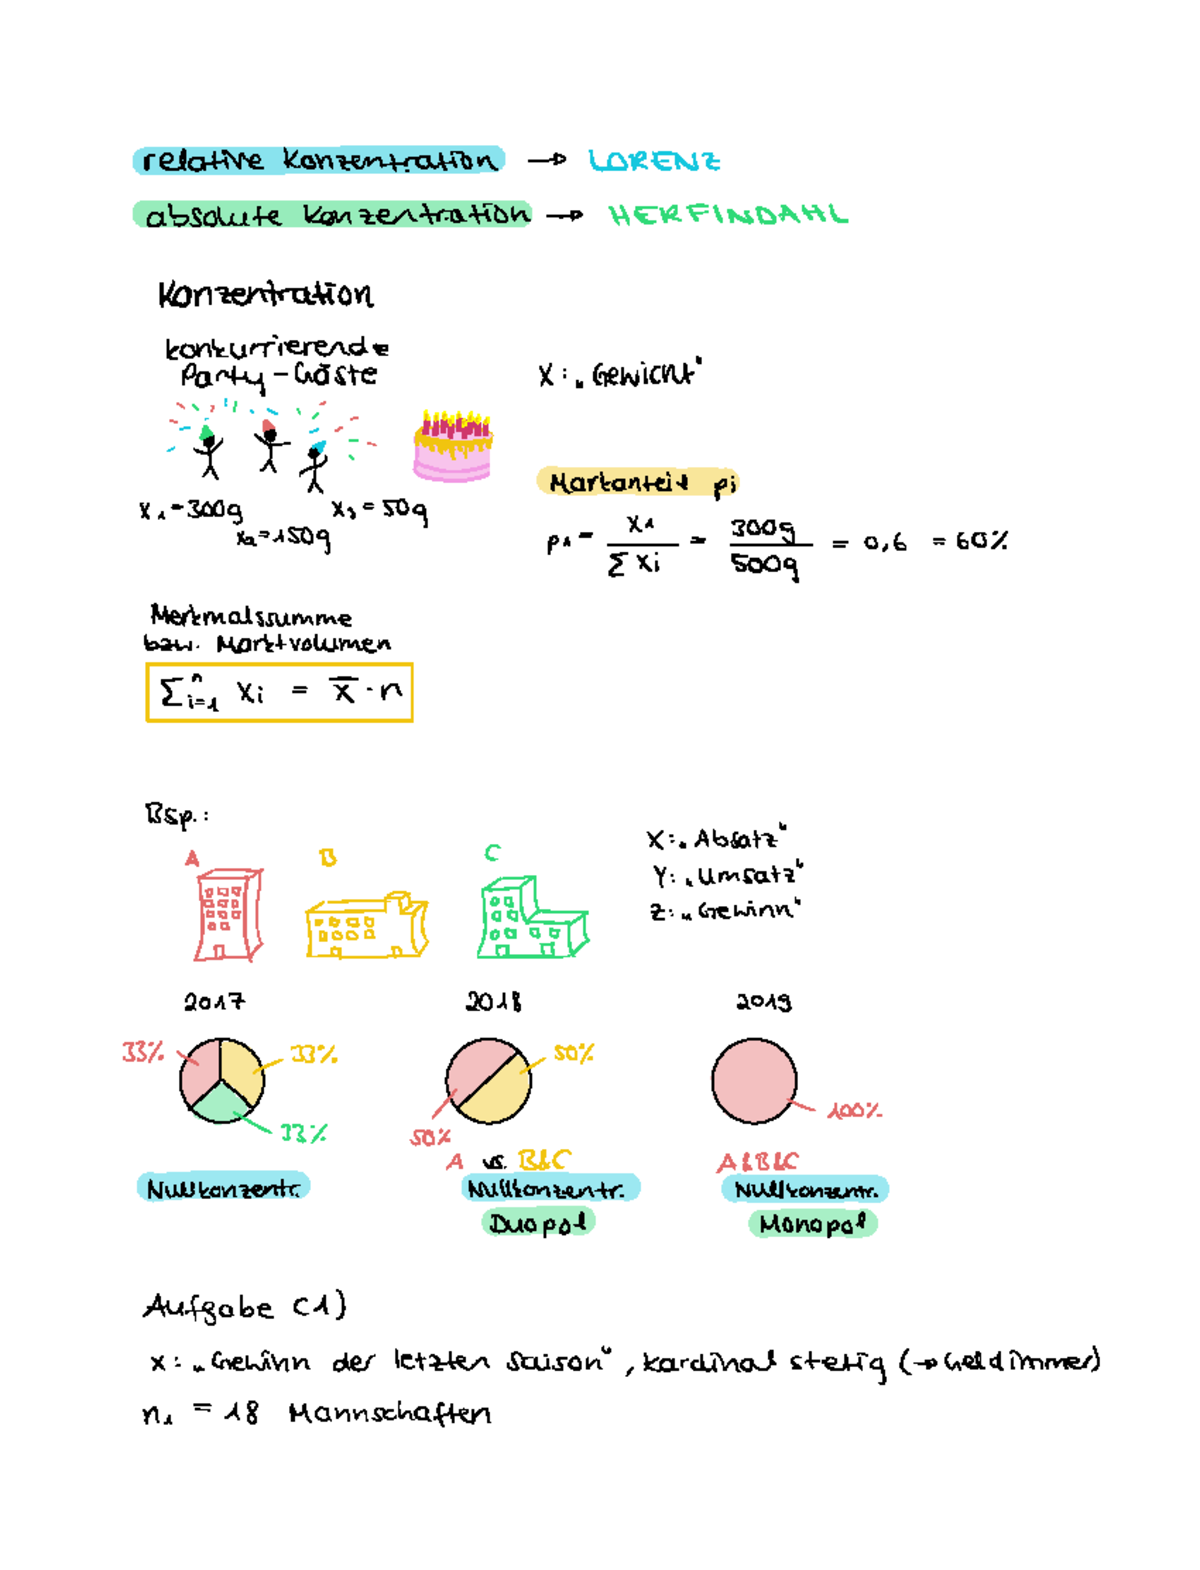 relative Konzentration → LORENZ
absolute Konzentration → HERFINDAHL
Konzentration
konkurrierende
Party-Gäste
X: „Gewicht“
x₁=300g
x₂=150g
x₃=50g
Marktanteil pi
p₁ = x₁ / ∑ xi = 300g / 500g = 0,6 = 60%
Merkmalssumme
bzw. Marktvolumen
∑ⁿᵢ₌₁ xi = x̄ · n
Bsp.:
A B C
X: „Absatz“
Y: „Umsatz“
Z: „Gewinn“
2017 2018 2019
33% 33% 50%
33% 50% 100%
A vs. B&C A&B&C
Nullkonzentr. Nullkonzentr. Nullkonzentr.
Duopol Monopol
Aufgabe C1)
x: „Gewinn der letzten Saison“, kardinal stetig (→ Geld immer)
n₁ = 18 Mannschaften